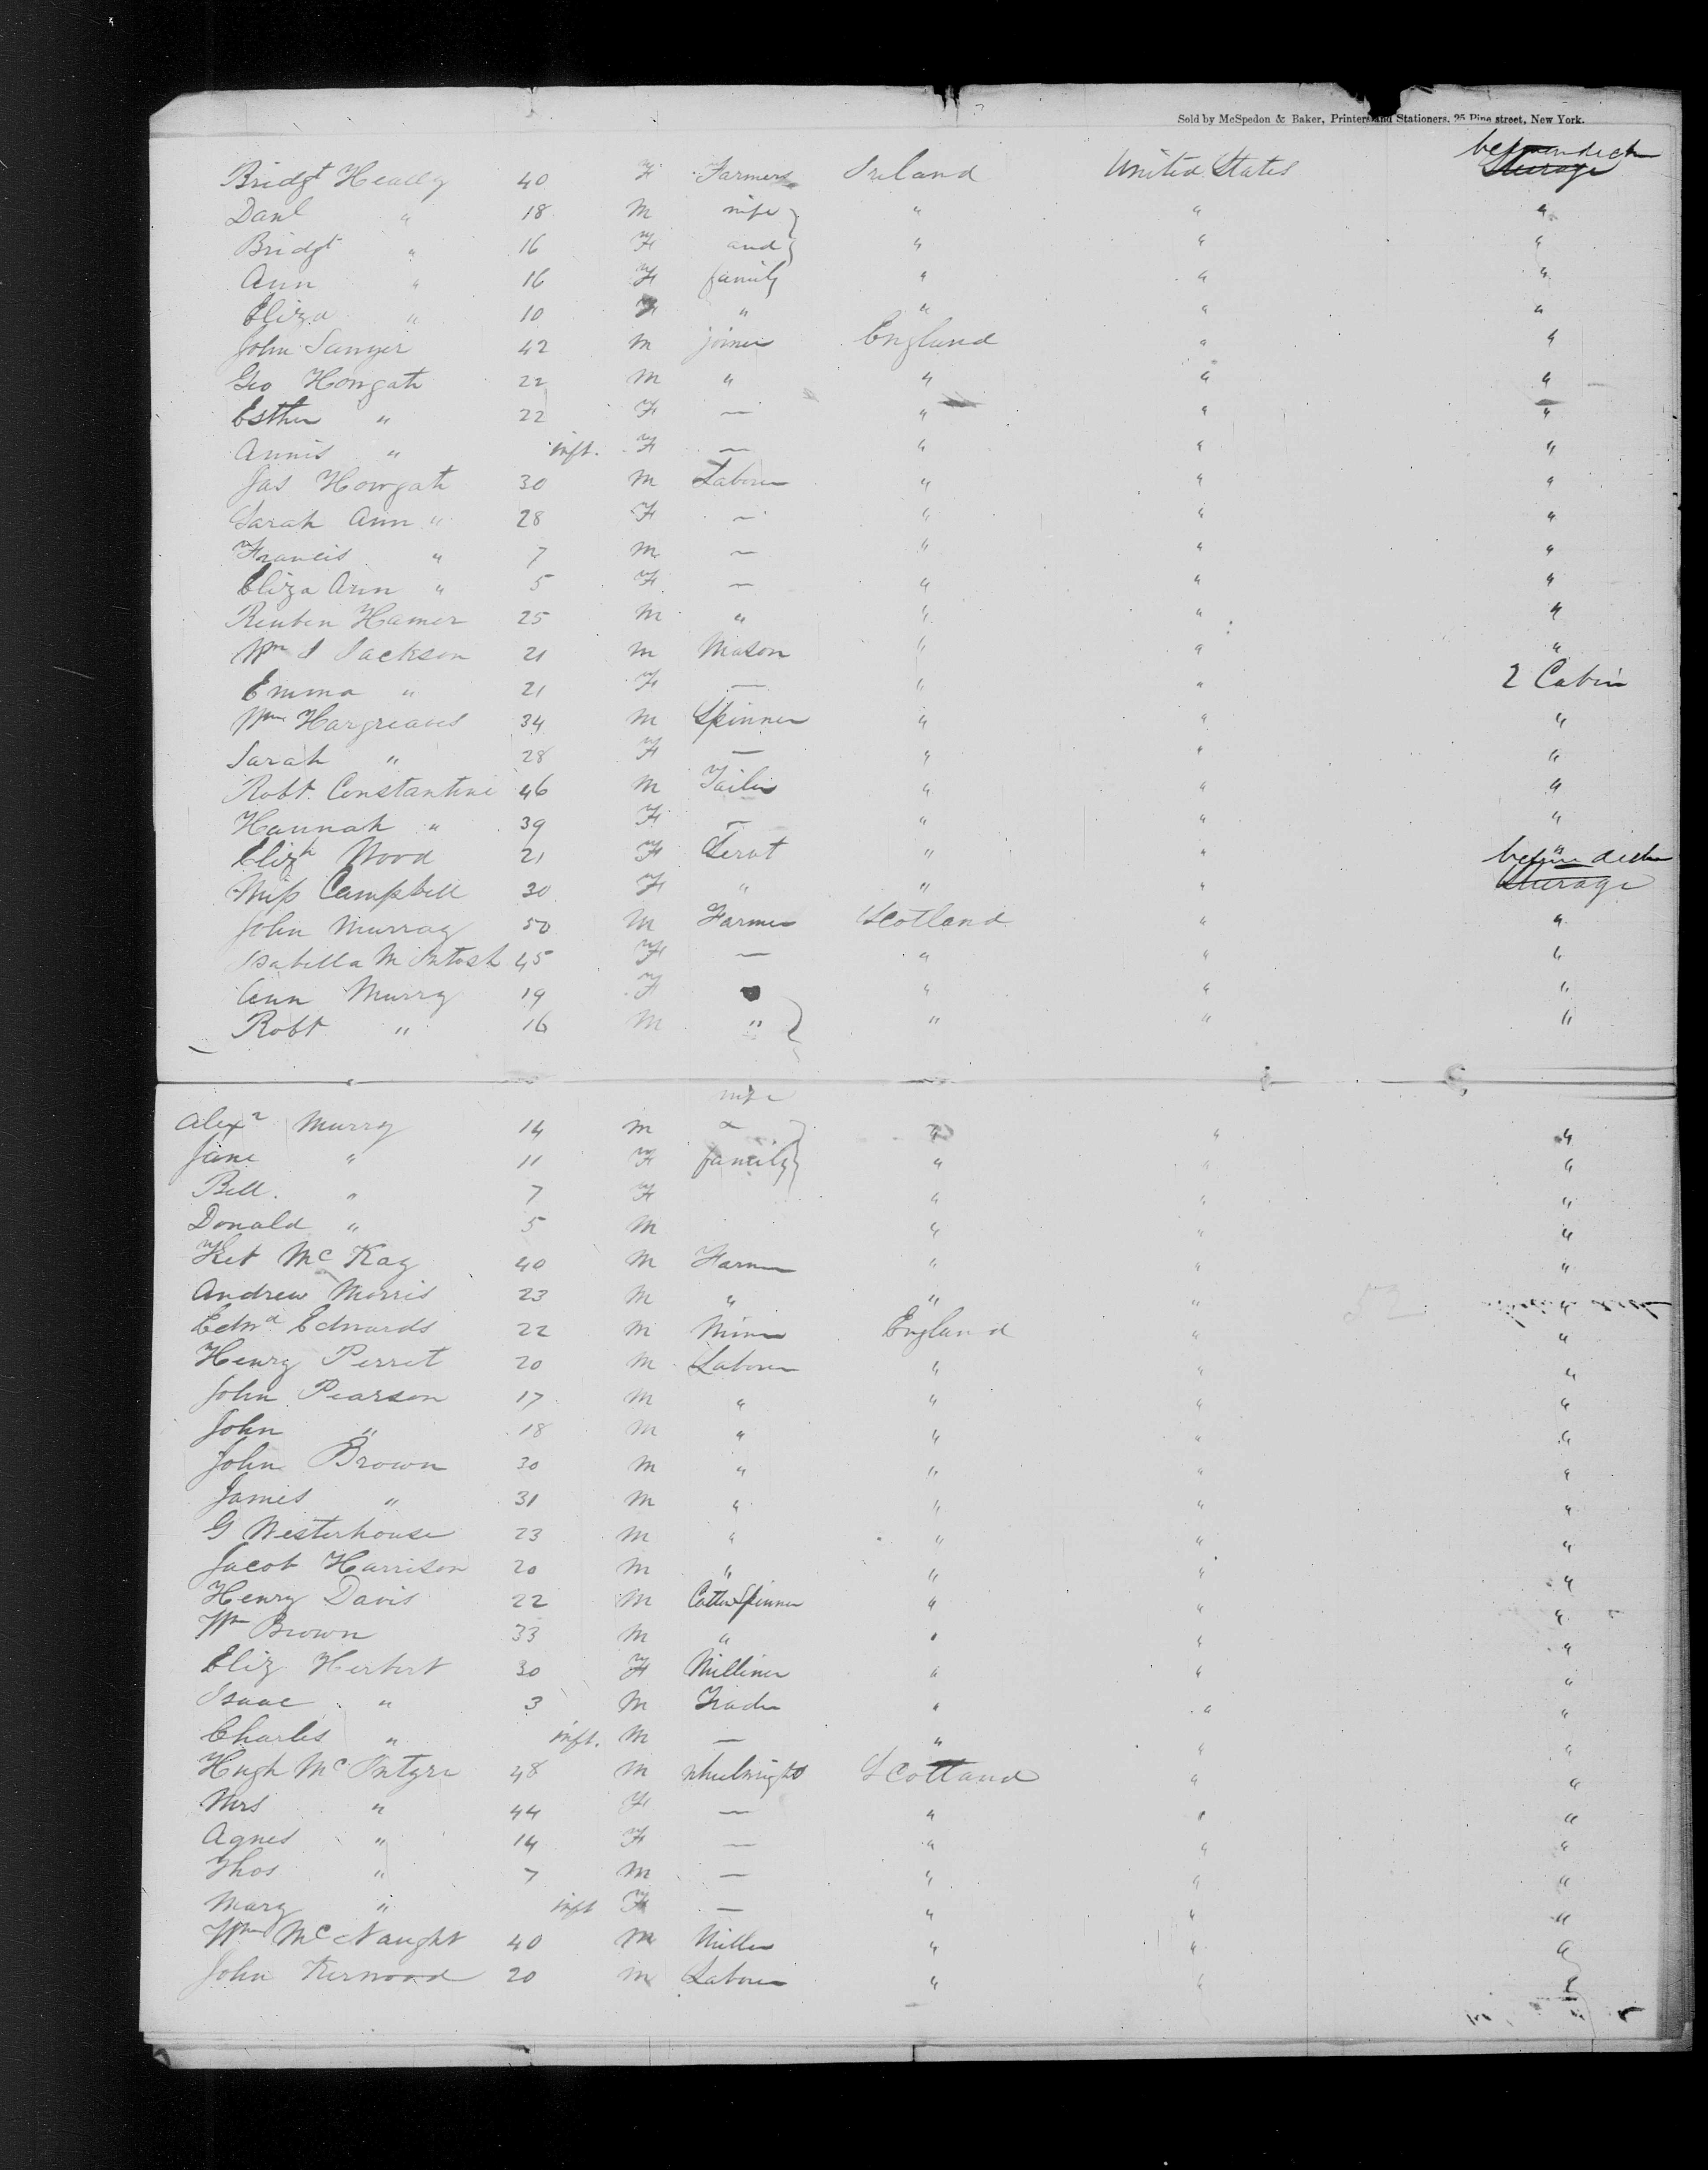 Sold by McSpedon & Baker, Printers and Stationers, 25 Pine street, New York.
between deck
Bridgt Heally 40 F Farmers Ireland United States Steerage
Danl " 18 M wife " " "
Bridgt " 16 F and " " "
Ann " 16 F family " " "
Eliza " 10 F " " " "
John Sawyer 42 M joiner England " "
Geo Howgate 22 M " " " "
Esther " 22 F — " " "
Annis " inft. F — " " "
Jas Howgate 30 M Laborer " " "
Sarah Ann " 28 F — " " "
Francis " 7 M — " " "
Eliza Ann " 5 F — " " "
Reuben Hamer 25 M " " " "
Wm J Jackson 21 M Mason " " "
Emma " 21 F — " " 2 Cabin
Wm Hargreaves 34 M Spinner " " "
Sarah " 28 F — " " "
Robt. Constantine 46 M Tailor " " "
Hannah " 39 F — " " "
Elizh Wood 21 F Servt " " "
between deck
Miss Campbell 30 F " " " Steerage
John Murray 50 M Farmer Scotland " "
Isabella McIntosh 45 F — " " "
Ann Murry 19 F " " "
Robt " 16 M " " " "
wife
Alexr Murry 14 M & " " "
Jane " 11 F family " " "
Bell. " 7 F " " "
Donald " 5 M " " "
Ket McKay 40 M Farmer " " "
Andrew Morris 23 M " " " "
Edwd Edwards 22 M Miner England " "
Henry Perret 20 M Laborer " " "
John Pearson 17 M " " " "
John " 18 M " " " "
John Brown 30 M " " " "
James " 31 M " " " "
G Westerhouse 23 M " " " "
Jacob Harrison 20 M " " " "
Henry Davis 22 M Cotton Spinner " " "
Wm Brown 33 M " " " "
Eliz Herbert 30 F Milliner " " "
Isaac " 3 M Trader " " "
Charles " inft. M — " " "
Hugh McIntyre 48 M wheelwright Scotland " "
Mrs " 44 F — " " "
Agnes " 14 F — " " "
Thos " 7 M — " " "
Mary " inft F — " " "
Wm McNaught 40 M Miller " " "
John Kerwood 20 M Laborer " " "